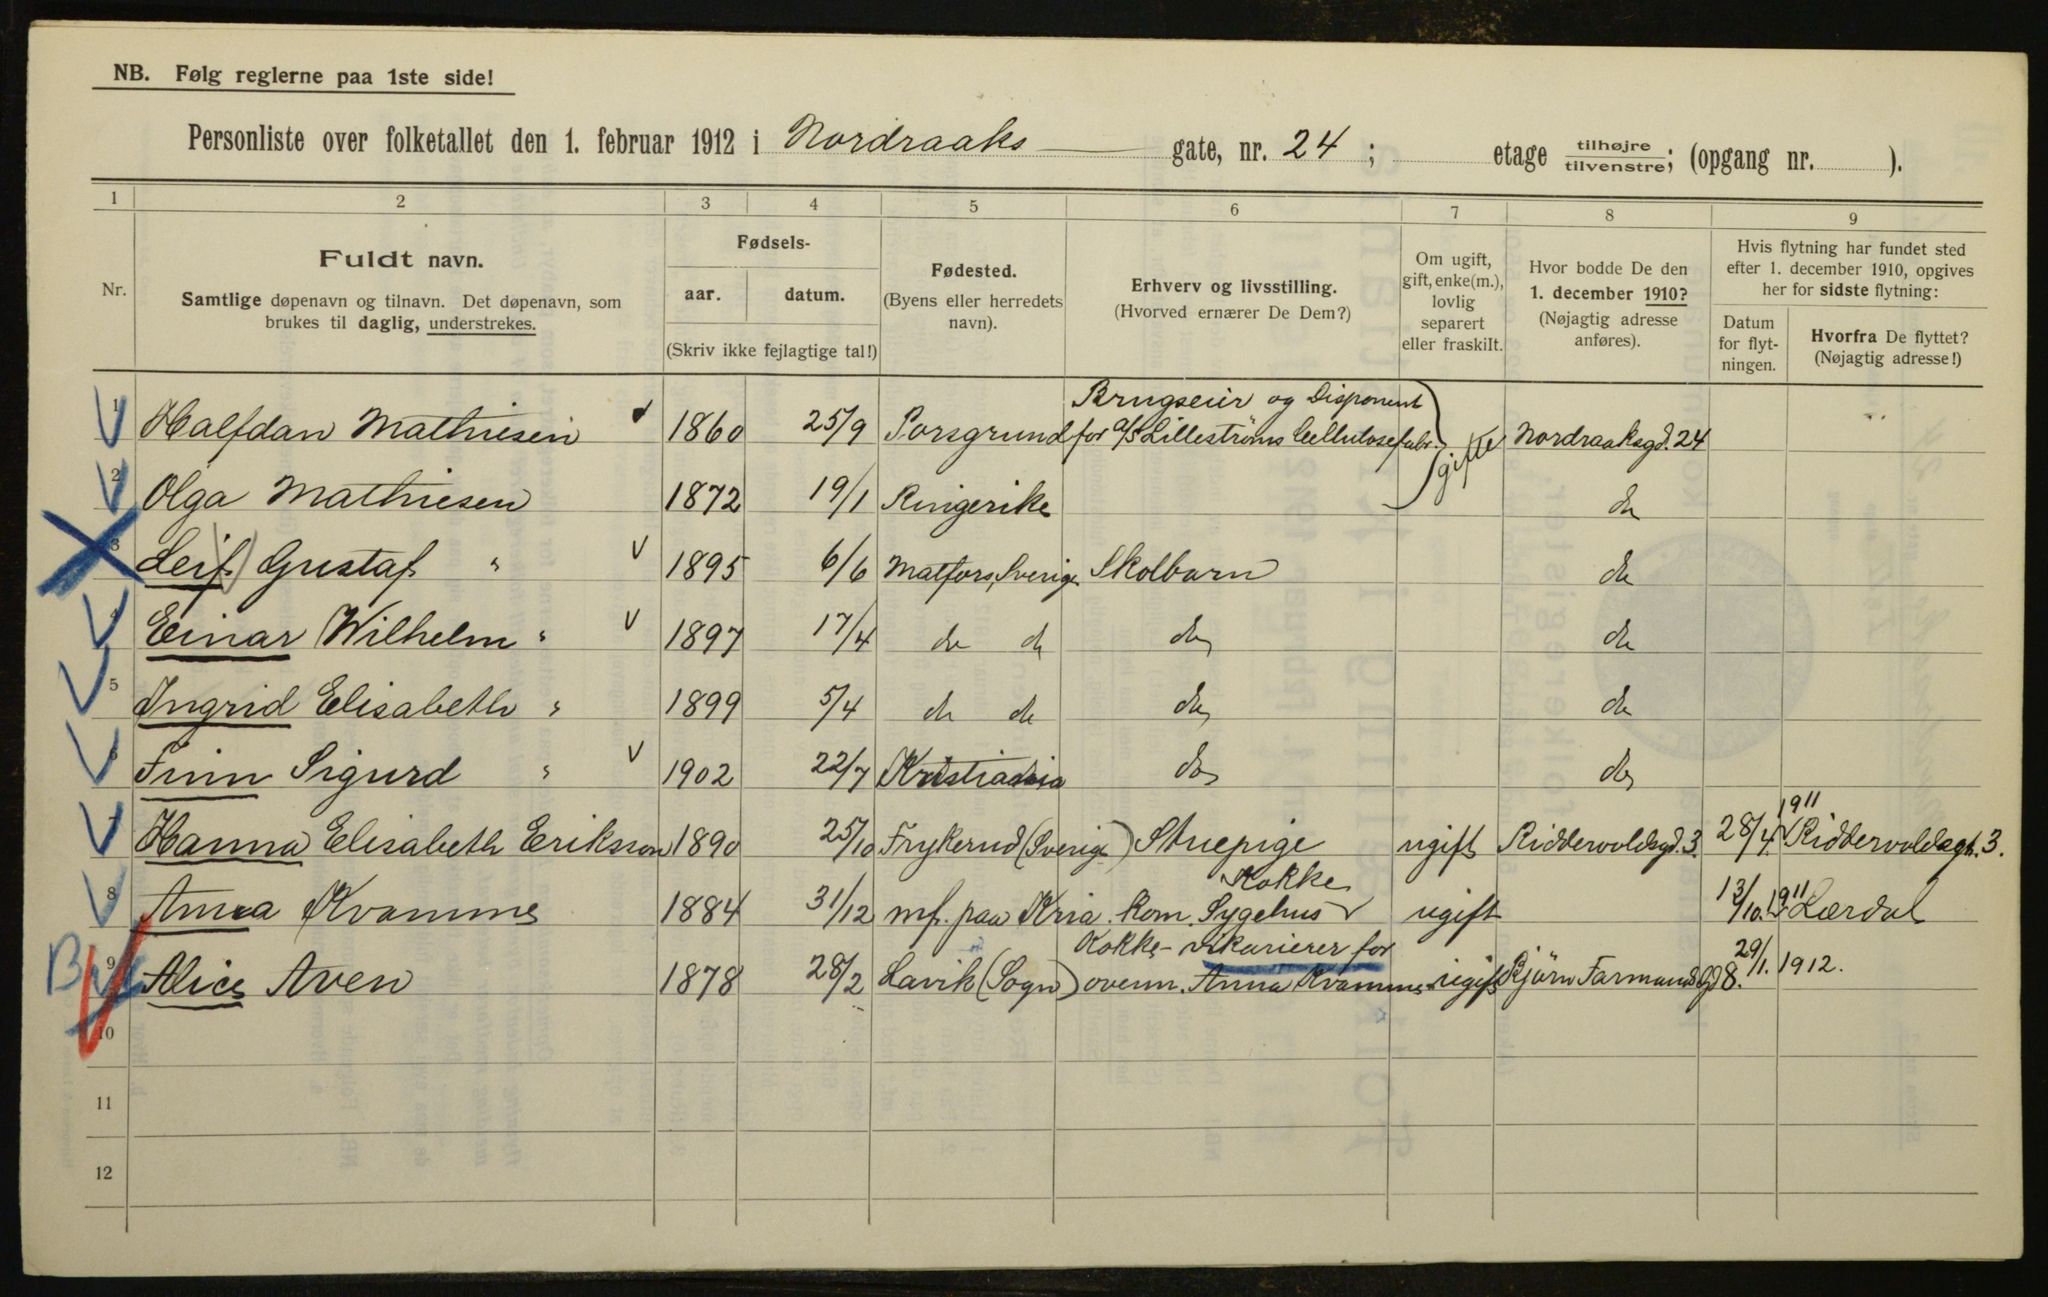 NB. Følg reglerne paa 1ste side!
Personliste over folketallet den 1. februar 1912 i Nordraaks gate, nr. 24 ; etage tilhøjre tilvenstre; (opgang nr. ).
1 2 3 4 5 6 7 8 9
Nr.
Fuldt navn.
Samtlige døpenavn og tilnavn. Det døpenavn, som
brukes til daglig, understrekes.
Fødsels-
aar. datum.
(Skriv ikke fejlagtige tal!)
Fødested.
(Byens eller herredets
navn).
Erhverv og livsstilling.
(Hvorved ernærer De Dem?)
Om ugift,
gift, enke(m.),
lovlig
separert
eller fraskilt.
Hvor bodde De den
1. december 1910?
(Nøjagtig adresse
anføres).
Hvis flytning har fundet sted
efter 1. december 1910, opgives
her for sidste flytning:
Datum
for flyt-
ningen.
Hvorfra De flyttet?
(Nøjagtig adresse!)
Brugseier og Disponent
1 Halfdan Mathiesen 1860 25/9 Porsgrund for a/s Lillestrøms Cellulosefabr. gifte Nordraaksgd. 24
2 Olga Mathiesen 1872 19/1 Ringerike do
3 Leif Gustaf " 1895 6/6 Matfors, Sverige Skolbarn do
4 Einar Wilhelm " 1897 17/4 do do do do
5 Ingrid Elisabeth " 1899 5/4 do do do do
6 Finn Sigurd " 1902 22/7 Kristiania do do
7 Hanna Elisabeth Eriksson 1890 25/10 Frykerud (Sverige) Stuepige ugift Riddervoldsgd. 3. 28/4. 1911 Riddervoldsgt. 3.
Kokke
8 Anna Kvamme 1884 31/12 mf. paa Kria. Kom. Sygehus ugift 13/10. 1911 Lærdal
Kokke- vikarierer for
9 Alice Aven 1878 28/2 Lavik (Sogn) ovenn. Anna Kvamme ugift Bjørn Farmands Gd 8. 29/1. 1912.
10
11
12